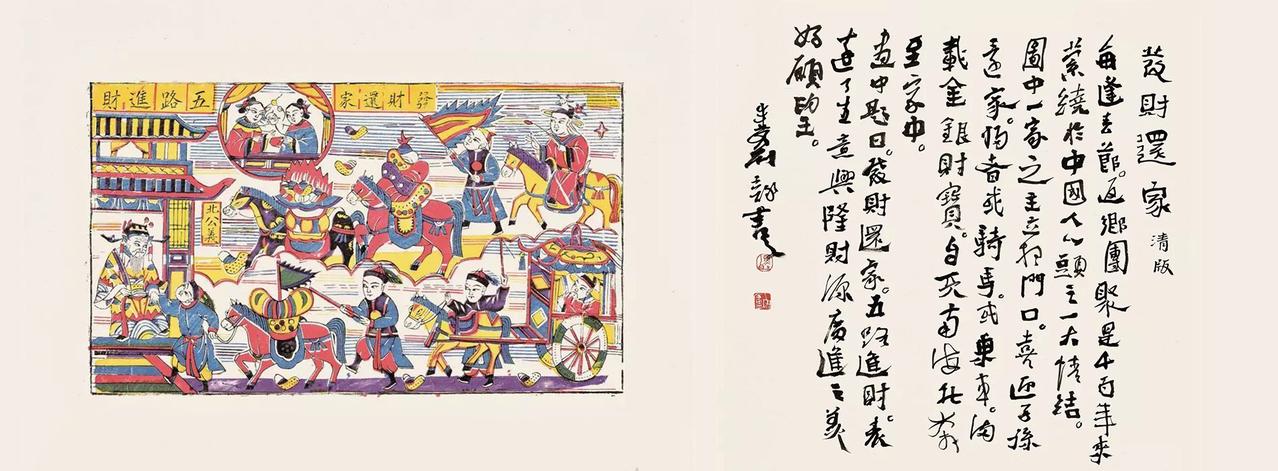 五路進財
發財還家
北公義
發財還家 清版
每逢春節。返鄉團聚是千百年來
縈繞於中國人心頭之一大情結。
圖中一家之主立於門口。喜迎子孫
還家。歸者或騎馬。或乘車。滿
載金銀財寶。自天南海北奔
至家中。
畫中題曰。發財還家。五路進財。表
達了生意興隆財源廣進之美
好願望。
書